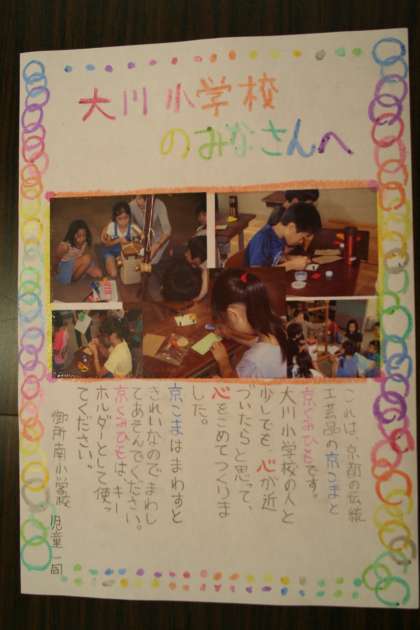 大川小学校
のみなさんへ
これは、京都の伝統
工芸品の京こまと
京くみひもです。
大川小学校の人と
少しでも、心が近
づいたらと思って、
心をこめてつくりま
した。
京こまはまわすと
きれいなのでまわし
てあそんでください。
京くみひもは、キー
ホルダーとして使っ
てください。
御所南小学校 児童一同